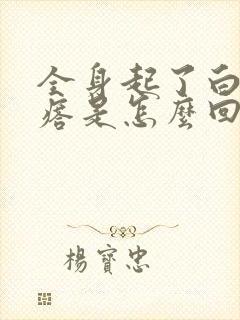 全身起了白
痞是怎麼回
楊寶忠